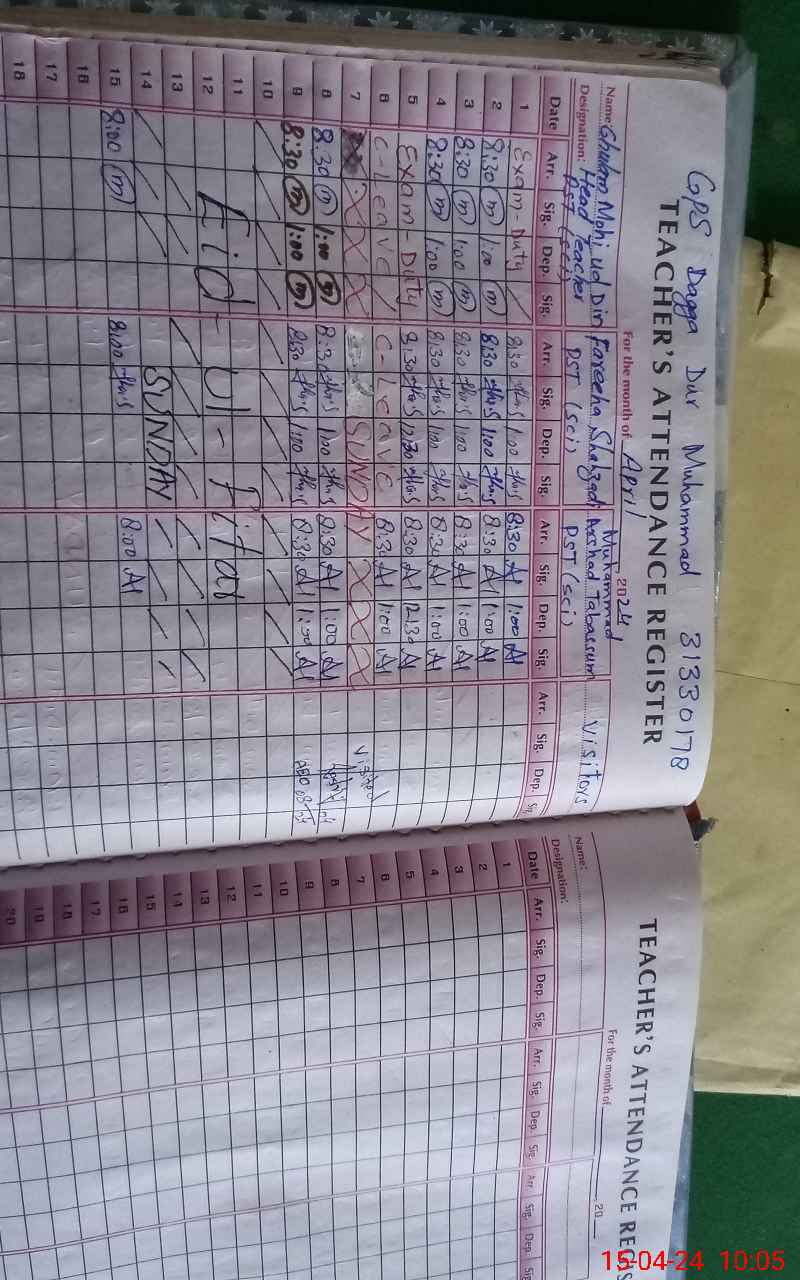 GPS Dagga Dur Muhammad 31330178
TEACHER'S ATTENDANCE REGISTER
For the month of April 2024
Name: Ghulam Mohi Ud Din Fareeha Shahzadi Muhammad Arshad Tabassum Visitors
Designation: Head Teacher PST (sci) PST (sci) PST (sci)
Date Arr. Sig. Dep. Sig. Arr. Sig. Dep. Sig. Arr. Sig. Dep. Sig. Arr. Sig. Dep. Sig.
1 Exam-Duty 8:30 1:00 8:30 1:00
2 8:30 1:00 8:30 1:00 8:30 1:00
3 8:30 1:00 8:30 1:00 8:30 1:00
4 8:30 1:00 8:30 1:00 8:30 1:00
5 Exam-Duty 8:30 12:30 8:30 12:30
6 C-Leave C-Leave 8:30 1:00
7 SUNDAY Visited
8 8:30 1:00 8:30 1:00 8:30 1:00
9 8:30 1:00 8:30 1:00 8:30 1:00 AEO
10
11
12 Eid-Ul-Fitar
13
14 SUNDAY
15 8:00 8:00 8:00
16
17
18
TEACHER'S ATTENDANCE REGIS
For the month of 20
Name:
Designation:
Date Arr. Sig. Dep. Sig. Arr. Sig. Dep. Sig. Arr. Sig. Dep.
1
2
3
4
5
6
7
8
9
10
11
12
13
14
15
16
17
18
19
20
15-04-24 10:05